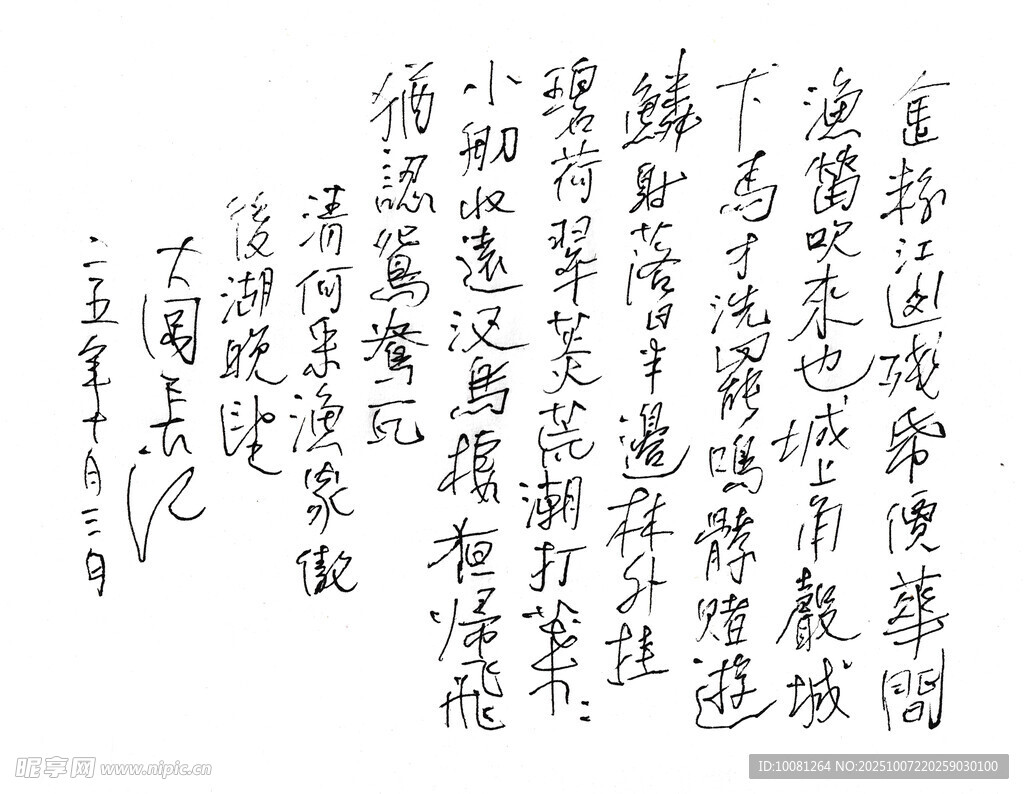 金粉江邊殘帋價華間
漁笛吹來也城上角聲城
下馬才洗罷鳴髇賭遊
鱗射落日半邊林外挂
碧荷翠芰荒潮打葉〻
小舠收遠汊烏棲歸飛
猶認鴛鴦瓦
清何采漁家傲
後湖晚望
大園長記
二五年十月三日
昵享网 www.nipic.cn
ID:10081264 NO:20251007220259030100